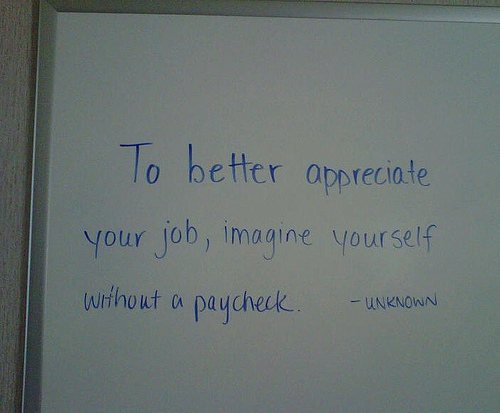 To better appreciate
your job, imagine yourself
without a paycheck. - UNKNOWN